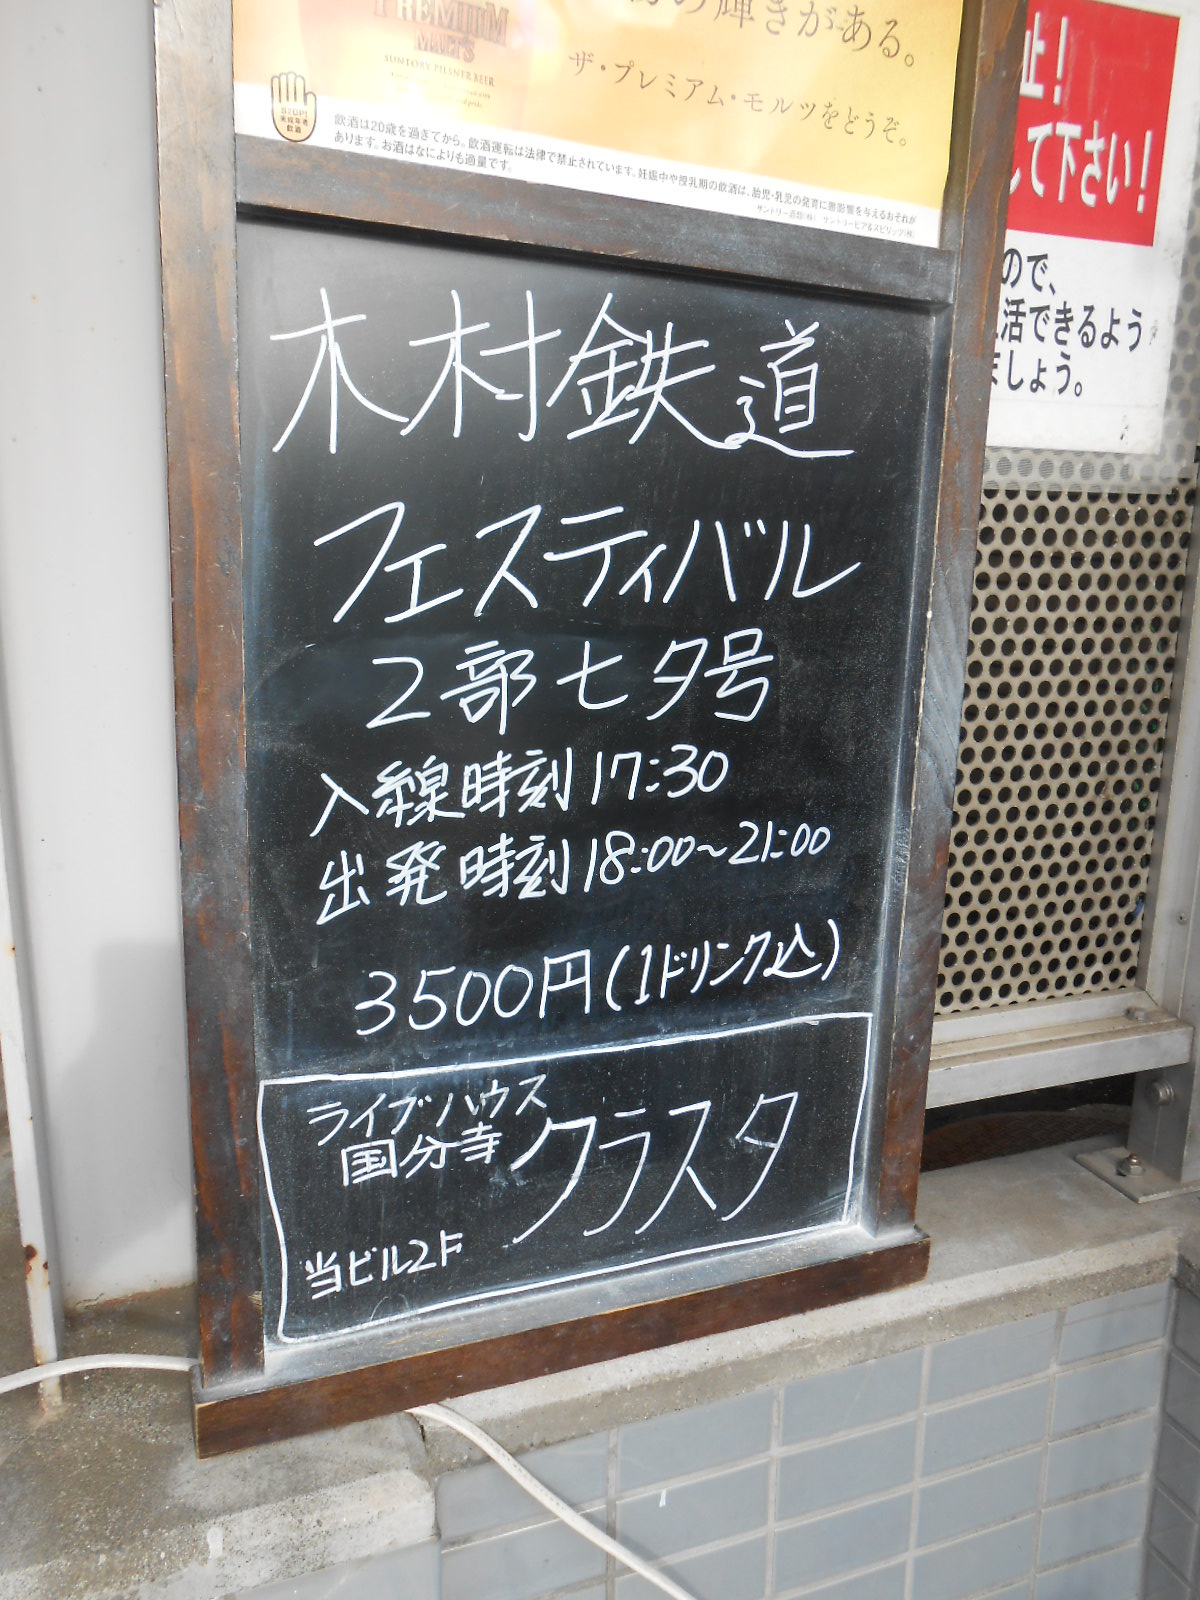 PREMIUM
MALT'S
SUNTORY PILSNER BEER
の輝きがある。
ザ・プレミアム・モルツをどうぞ。
STOP!
未成年者
飲酒
飲酒は20歳を過ぎてから。飲酒運転は法律で禁止されています。妊娠中や授乳期の飲酒は、胎児・乳児の発育に悪影響を与えるおそれが
あります。お酒はなによりも適量です。
サントリー酒類(株) サントリービア&スピリッツ(株)
止!
して下さい!
ので、
活できるよう
ましょう。
木村鉄道
フェスティバル
2部七夕号
入線時刻17:30
出発時刻18:00〜21:00
3500円(1ドリンク込)
ライブハウス
国分寺 クラスタ
当ビル2F